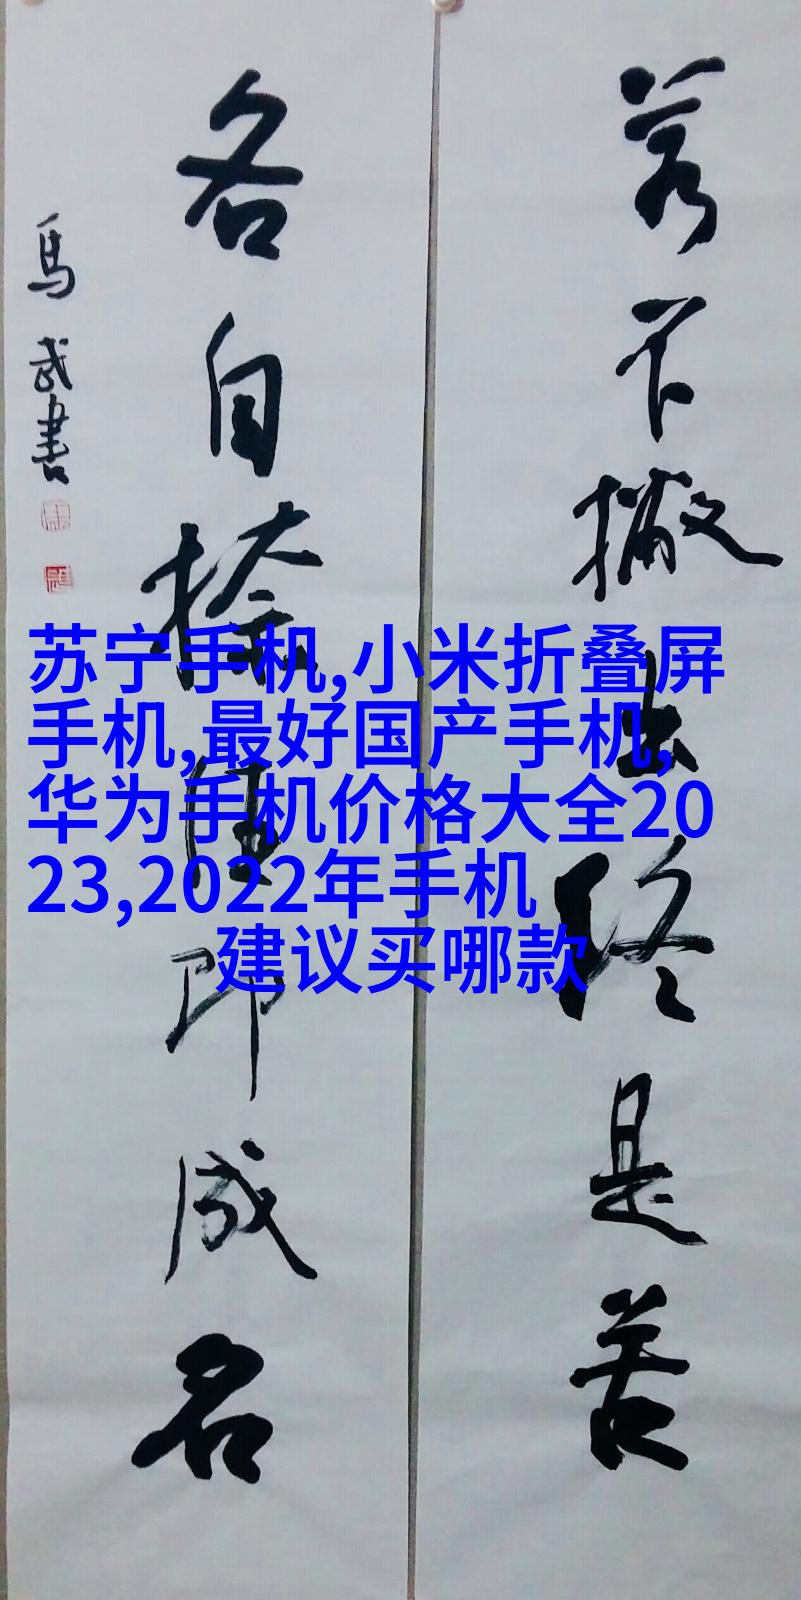 若不撇出终是苦
各自捺固即成名
馬武書
苏宁手机,小米折叠屏
手机,最好国产手机,
华为手机价格大全20
23,2022年手机
建议买哪款